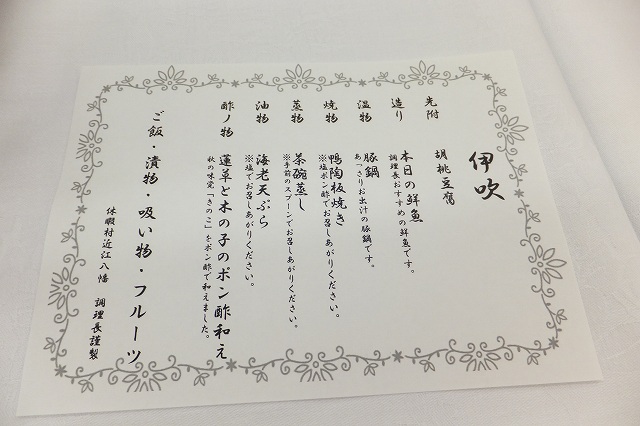 伊吹
先附　胡桃豆腐
造り　本日の鮮魚
調理長おすすめの鮮魚です。
温物　豚鍋
あっさりお出汁の豚鍋です。
焼物　鴨陶板焼き
※塩ポン酢でお召しあがりください。
蒸物　茶碗蒸し
※手前のスプーンでお召しあがりください。
油物　海老天ぷら
※塩でお召しあがりください。
酢ノ物　蓮草と木の子のポン酢和え
秋の味覚「きのこ」をポン酢で和えました。
ご飯・漬物・吸い物・フルーツ
休暇村近江八幡　調理長謹製